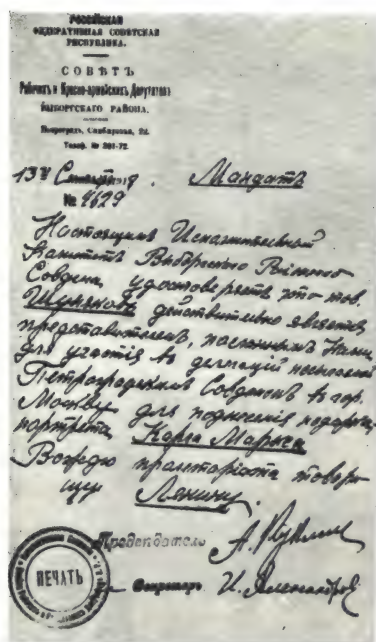 РОССІЙСКАЯ
ФЕДЕРАТИВНАЯ СОВѢТСКАЯ
РЕСПУБЛИКА.
СОВѢТЪ
Рабочихъ и Красно-армейскихъ Депутатовъ
ВЫБОРГСКАГО РАЙОНА.
Петроградъ, Симбирская,
Телеф. №
13го Сентября 191
№ 4629
Мандатъ
Настоящимъ Исполнительный
Комитетъ Выборгскаго Районнаго
Совдепа удостоверяетъ что тов.
действительно является
представителемъ, посланнымъ Нами,
для участія въ делегаціи посылаемой
Петроградскимъ Совдепомъ въ гор.
Москву для поднесенія подарка,
портрета Карла Маркса
Вождю пролетаріата товари-
щу Ленину.
Председатель
ПЕЧАТЬ
Секретарь И. Александров